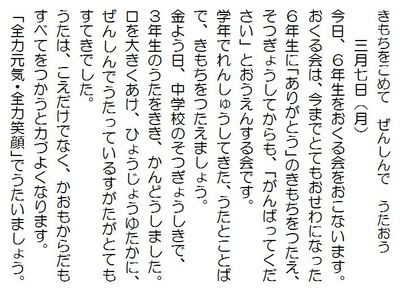 きもちをこめて　ぜんしんで　うたおう
三月七日（月）
今日、６年生をおくる会をおこないます。
おくる会は、今までとてもおせわになった
６年生に「ありがとう」のきもちをつたえ、
そつぎょうしてからも、「がんばってくだ
さい」とおうえんする会です。
学年でれんしゅうしてきた、うたとことば
で、きもちをつたえましょう。
金よう日、中学校のそつぎょうしきで、
３年生のうたをきき、かんどうしました。
口を大きくあけ、ひょうじょうゆたかに、
ぜんしんでうたっているすがたがとても
すてきでした。
うたは、こえだけでなく、かおもからだも
すべてをつかうと力づよくなります。
「全力元気・全力笑顔」でうたいましょう。